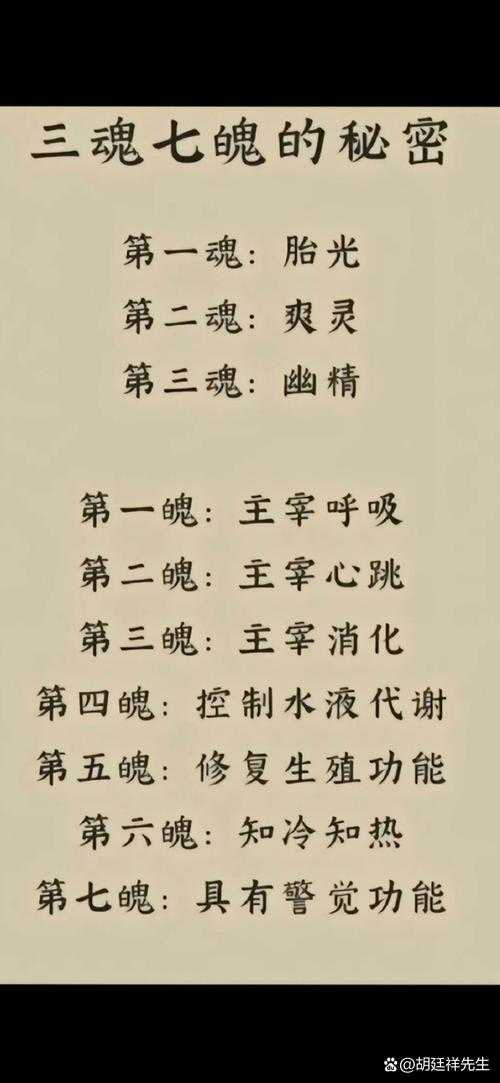 三魂七魄的秘密
第一魂：胎光
第二魂：爽灵
第三魂：幽精
第一魄：主宰呼吸
第二魄：主宰心跳
第三魄：主宰消化
第四魄：控制水液代谢
第五魄：修复生殖功能
第六魄：知冷知热
第七魄：具有警觉功能
胡廷祥先生